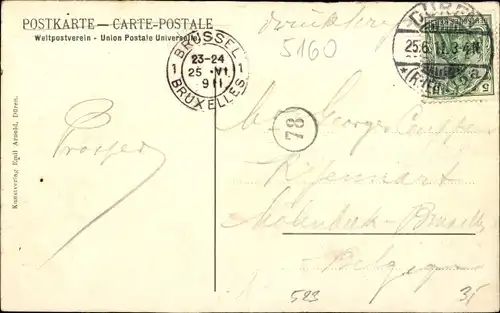 POSTKARTE — CARTE-POSTALE
Weltpostverein - Union Postale Universelle
Drucksache
5160
BRÜSSEL
1 23-24 1
25 VI
911
BRUXELLES
DÜREN
25.6.11.3-4N
* (RHEINL) a
5
78
Kunstverlag Egid Arnold, Düren.
Prosper
Mr Georges
Molenbeek - Bruxelles
Belgique
523
35